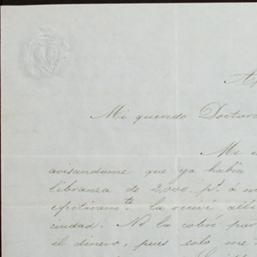 Mi querido Doctor
Me
avisandome que ya habia
libranza de 2,000 p.s a
efectivam.te la recibi alla
ciudad. No la cobré por
el dinero, pues solo me